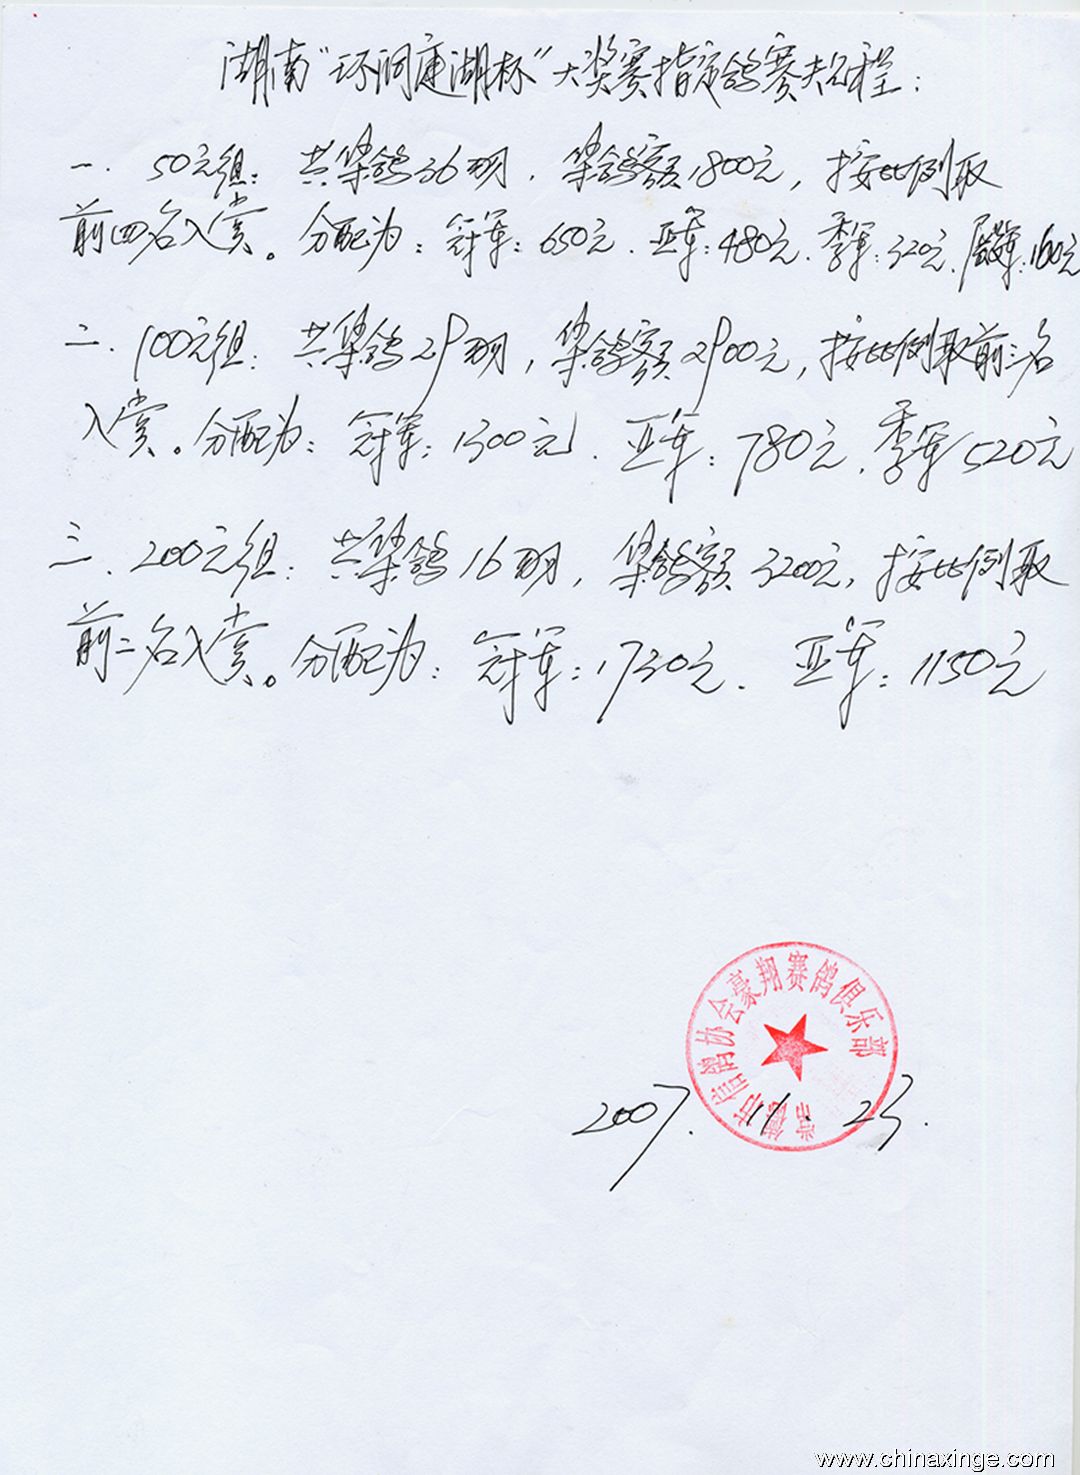 湖南“环洞庭湖杯”大奖赛指定鸽赛规程：
一．50元组：共集鸽36羽．集鸽额1800元，按比例取
前四名入赏。分配为：冠军：650元．亚军：480元．季军：320元．殿军：160元
二．100元组：共集鸽29羽，集鸽额2900元，按比例取前三名
入赏。分配为：冠军：1300元．亚军：780元．季军520元
三．200元组：共集鸽16羽，集鸽额3200元，按比例取
前二名入赏。分配为：冠军：1730元．亚军：1150元
常德市信鸽协会豪翔赛鸽俱乐部
2007.11.23.
www.chinaxinge.com